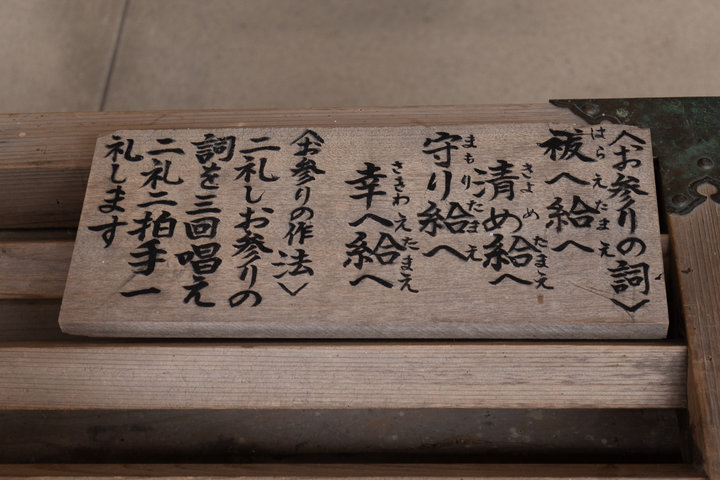 〈お参りの詞〉
祓へ給へ
清め給へ
守り給へ
幸へ給へ
〈お参りの作法〉
二礼しお参りの
詞を三回唱え
二礼二拍手一
礼します
はらえたまえ
きよめたまえ
まもりたまえ
さきわえたまえ